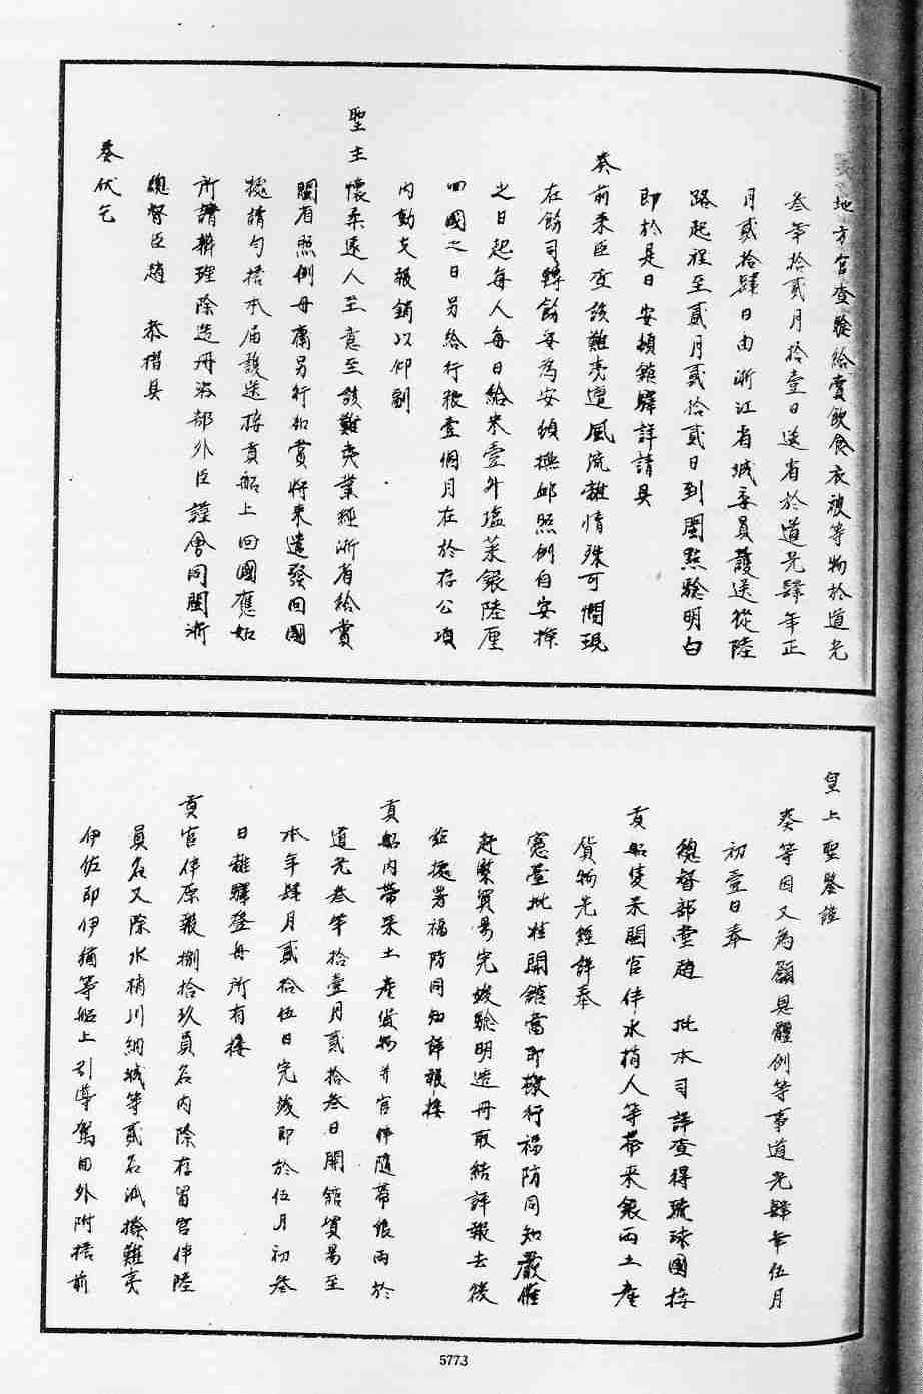 地方官查驗給賞飲食衣被等物於道光
叁年拾貳月拾壹日送省於道光肆年正
月貳拾肆日由浙江省城委員護送從陸
路起程至貳月貳拾貳日到閩點驗明白
即於是日安頓館驛詳請具
奏前來臣查該難夷遭風流離情殊可憫現
在飭司轉飭妥為安頓撫卹照例自安揷
之日起每人每日給米壹升塩菜銀陸厘
回國之日另給行粮壹個月在於存公項
內動支報銷以仰副
聖主懷柔遠人至意至該難夷業經浙省給賞
閩省照例毋庸另行加賞將來遣發回國
據請勻搭本届護送接貢船上回國應如
所請辦理除造冊咨部外臣謹會同閩浙
總督臣趙 恭摺具
奏伏乞
皇上聖鑒謹
奏等因又為願見體例等事道光肆年伍月
初壹日奉
總督部堂趙 批本司詳查得琉球國接
貢船隻來閩官伴水梢人等帶來銀兩土產
貨物先經詳奉
憲臺批准開館當即檄行福防同知嚴催
赶緊買易完竣驗明造冊取結詳報去後
茲據署福防同知詳報接
貢船內帶來土產貨物并官伴隨帶銀兩於
道光叁年拾壹月貳拾叁日開館貿易至
本年肆月貳拾伍日完竣即於伍月初叁
日離驛登舟所有接
貢官伴原報捌拾玖員名內除存留官伴陸
員名又除水梢川細城等貳名派撥難夷
伊佐即伊稱等船上引導駕回外附搭前
5773